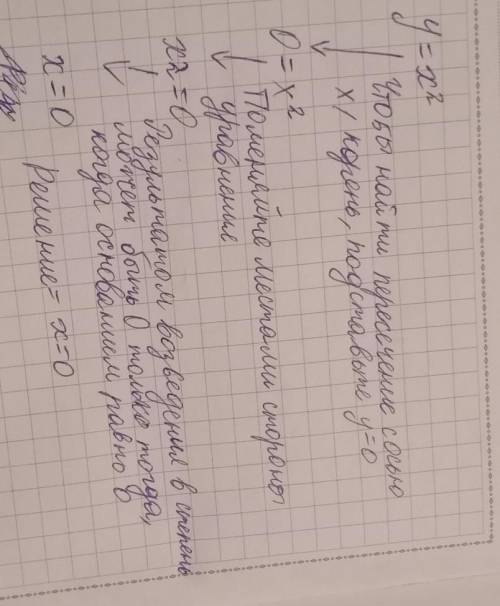 y = x²
↓ Чтобы найти пересечение с осью
x / корень, подставьте y=0
0 = x²
↓ Поменяйте местами стороны
уравнение
x² = 0
↓ Результатом возведение в степень
может быть 0 только тогда,
когда основанием равно 0
x = 0 Решение = x=0